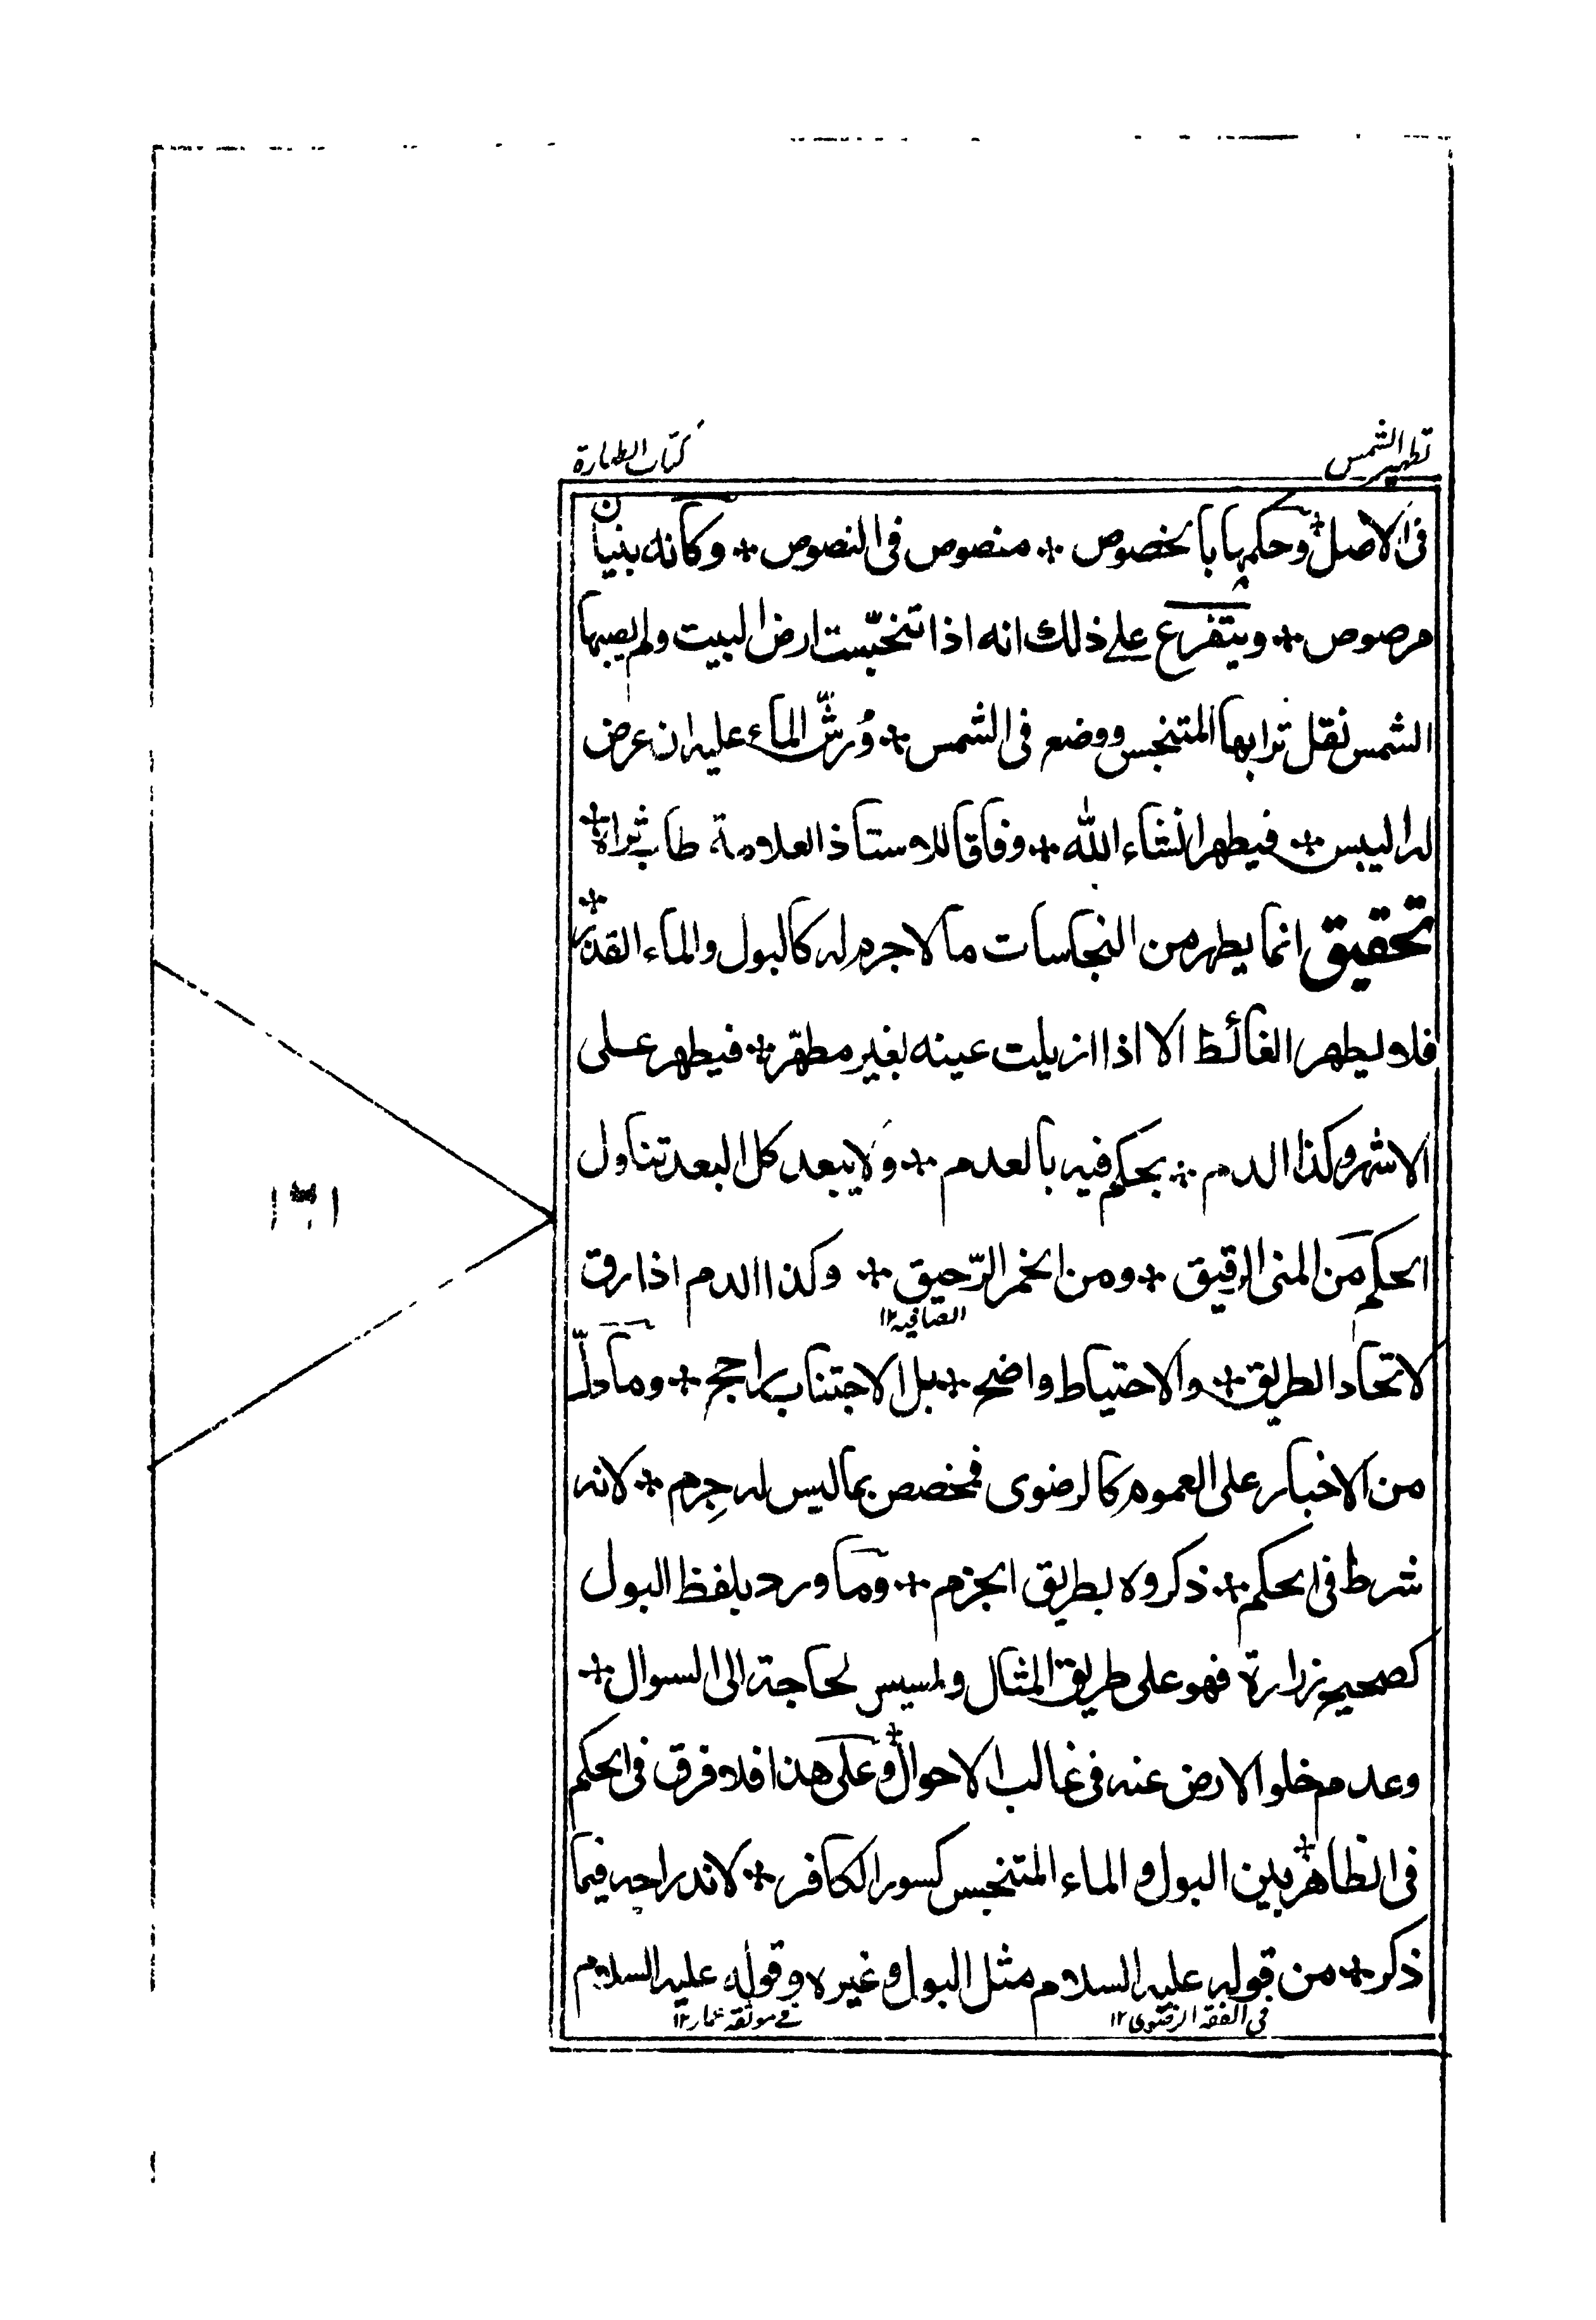 تطهير الشمس
كتاب الطهارة
فى الاصل + وحكمها بالخصوص + منصوص فى النصوص + وكانه بنيان
مرصوص + ويتفرع على ذلك انه اذا تنجّست ارض البيت ولم يصبها
الشمس نقل ترابها المتنجس ووضع فى الشمس + ورُشّ الماء عليه ان عرض
له اليبس + فيطهر انشاء الله + وفاقا للاستاذ العلامة طاب ثراه +
تحقيق انما يطهر من النجاسات ما لا جرم له كالبول والماء القذر +
فلا يطهر الغائط الا اذا ازيلت عينه بغير مطهّر + فيطهر على
الاشهر وكذا الدم + يحكم فيه بالعدم + ولا يبعد كل البعد تناول
الحكم من المنى الرقيق + ومن الخمر الرّحيق + وكذا الدم اذا رق
الصافية ١٢
لاتحاد الطريق + والاحتياط واضح + بل الاجتناب راجح + وما دلّ
من الاخبار على العموم كالرضوى فمخصص بما ليس له جِرم + لانه
شرط فى الحكم + ذكروه بطريق الجزم + وما ورد بلفظ البول
كصحيح زرارة فهو على طريق المثال ولمسيس لحاجة الى السوال +
وعدم خلو الارض عنه فى غالب الاحوال + وعلى هذا فلا فرق فى الحكم
فى الظاهر + بين البول و الماء المتنجس كسور الكافر + لاندراجه فيما
ذكر + من قوله عليه السلام مثل البول وغيره وقوله عليه السلام
فى الفقه الرضوى ١٢
فى موثقة عمار ١٢